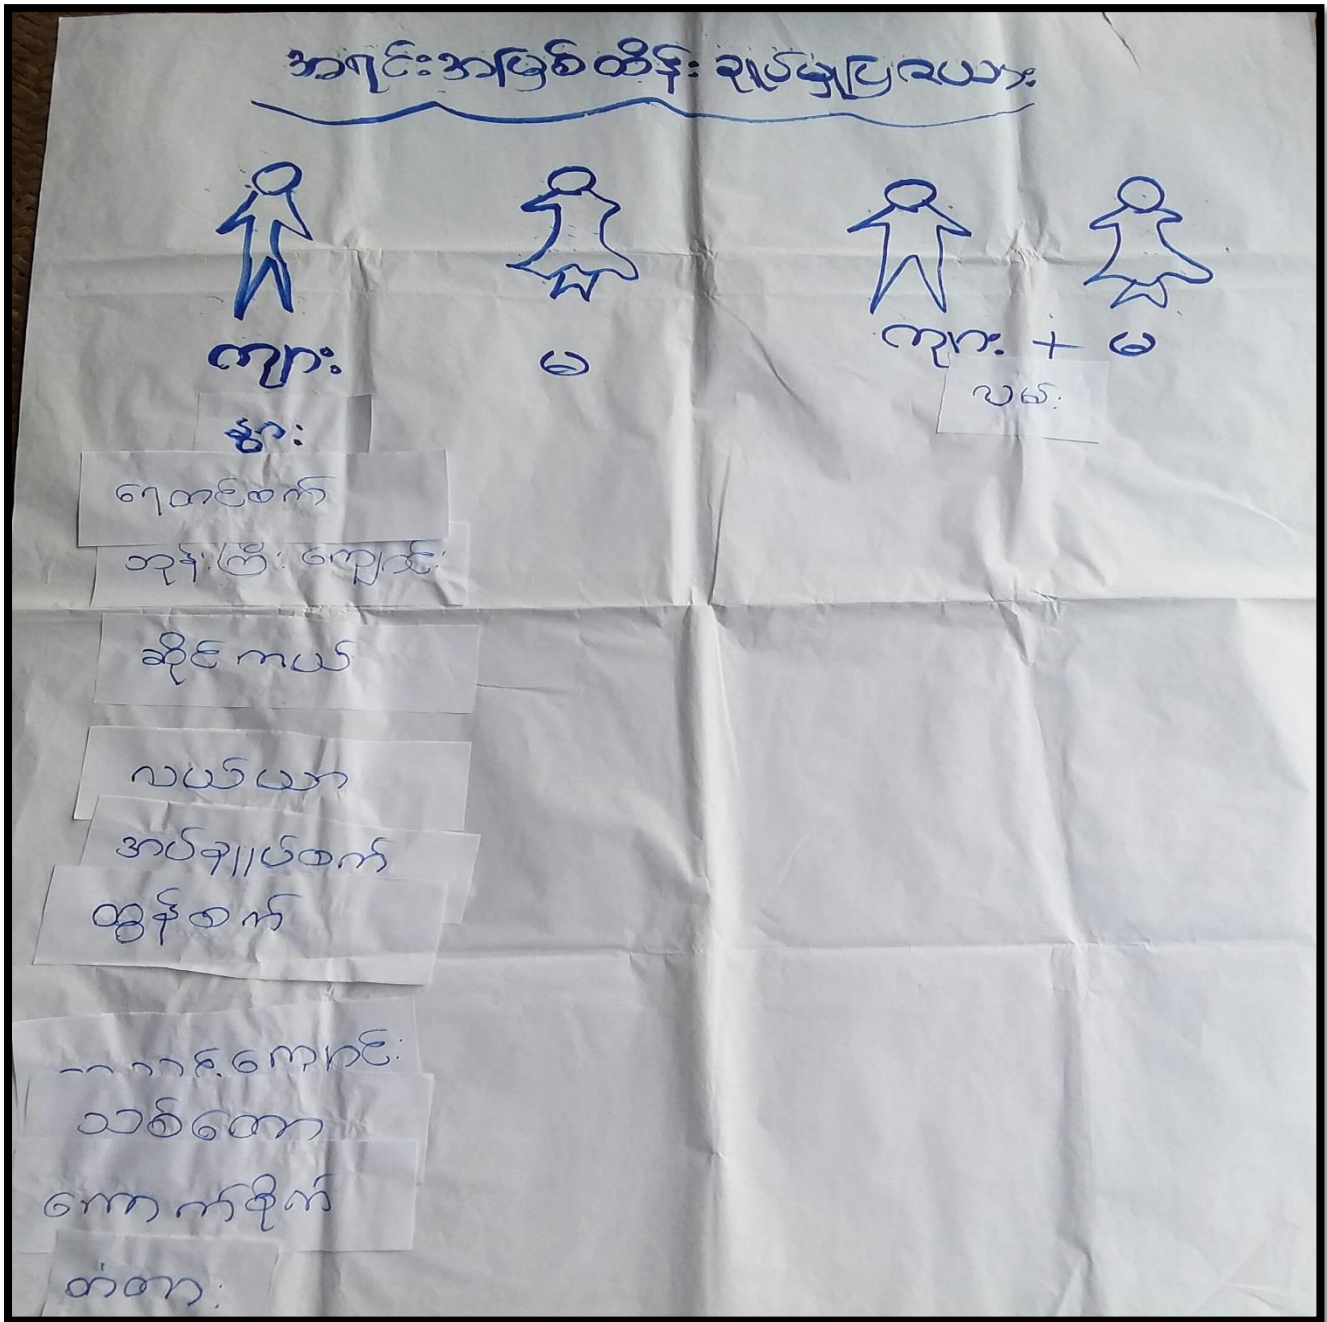 အရင်းအမြစ်ထိန်းချုပ်မှုပြဇယား
ကျား မ ကျား + မ
လမ်း
နွား
ရေတင်စက်
ဘုန်းကြီးကျောင်း
ဆိုင်ကယ်
လယ်ယာ
အပ်ချုပ်စက်
ထွန်စက်
ကျောင်း
သစ်တော
ကောက်စိုက်
တံတား